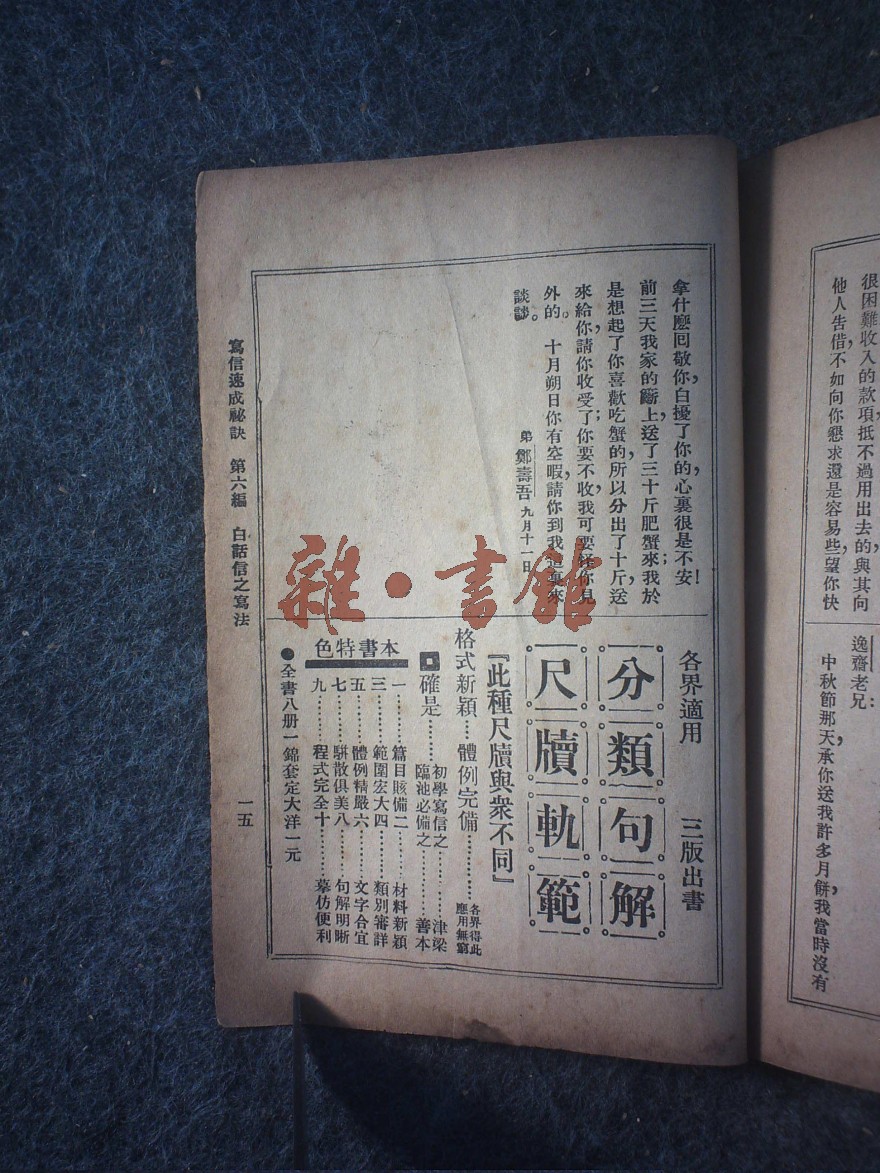 很困難收入的款項抵不過用出去的,與其向
他人告借,不如向你懇求還是容易些,望你快
逸齋老兄:
中秋節那天,承你送我許多月餅,我當時沒有
拿什麼囘敬你,白擾了你的,心裏很是不安!
前三天我家的斷上,送了三十斤肥蟹來;我於
是想起了你喜歡吃蟹的,所以分出了十斤,送
來給你,請你收受了;你要不收,我可要怪你見
外的。十月朔日,你有空暇,請你到我這裏來
談談。
弟 鄭壽吾 九月十一日
各界適用 三版出書
分類句解
尺牘軌範
『此種尺牘與衆不同』
格式新穎…體例完備………各界得此應用無窮
確是………初學寫信之………津梁
臨池必備之………善本
本書特色
一………篇目賅備 二………材料新穎
三………範圍宏大 四………類別審詳
五………體例精嚴 六………文字合宜
七………駢散俱美 八………句解明晰
九………程式完全 十………摹仿便利
●全書八册一錦套定大洋一元
寫信速成祕訣 第六編 白話信之寫法
一五
雜·書館